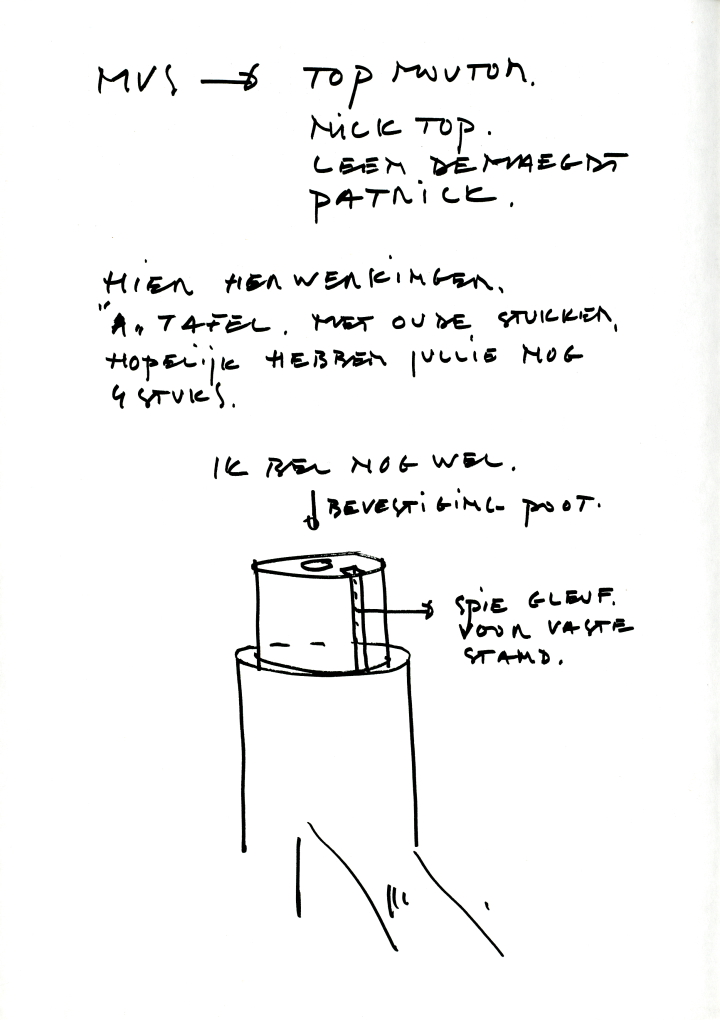 MVS → TOP MOUTON.
NICK TOP.
LEEN DEMAEGDT
PATRICK.
HIER HERWERKINGEN.
"A" TAFEL. MET OUDE STUKKEN,
HOPELIJK HEBBEN JULLIE NOG
4 STUKS.
IK BEL NOG WEL.
↓ BEVESTIGING POOT.
SPIE GLEUF.
VOOR VASTE
STAND.